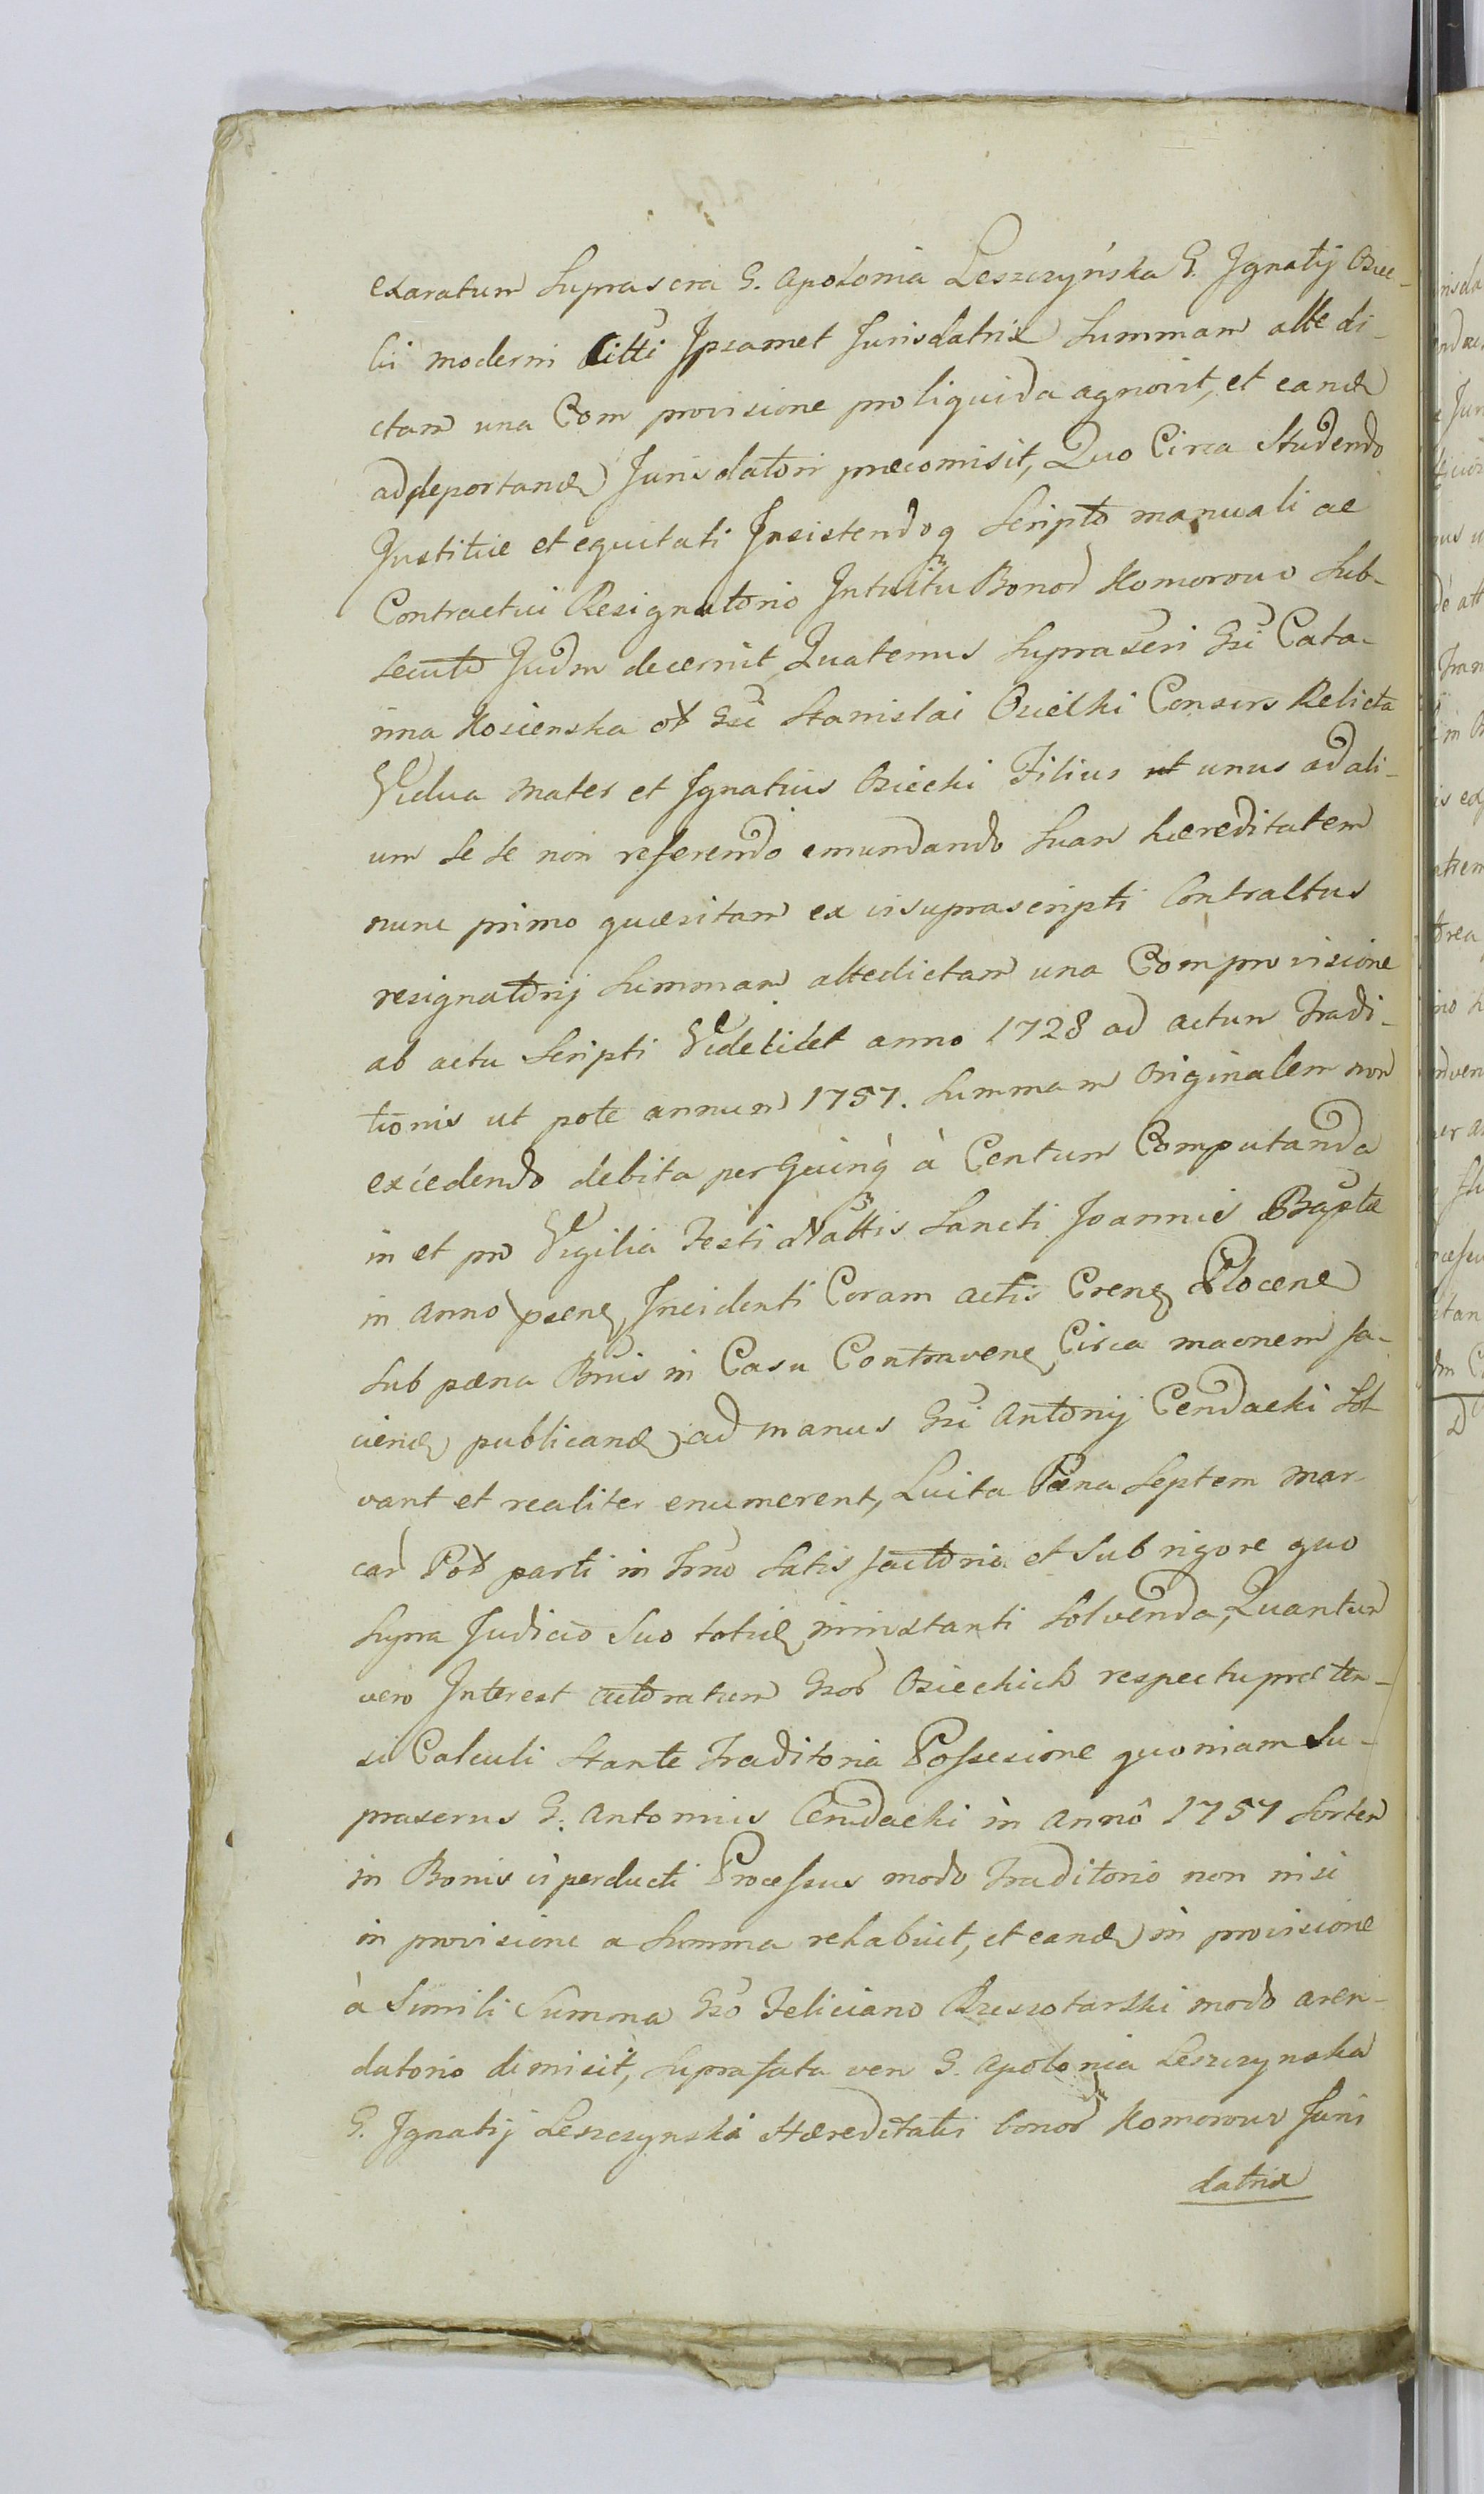 exaratum Suprascra G. Apolonia Leszczyńska G. Ignatij Osiec-
ki moderni Citti Ipsamet Jurisdatrix Summam alte di-
ctam una Com provisione pro liquida agnovit, et eand
ad deportand Jurisdatori præcomisit, Quo Circa Studendo
Justitiæ et equitati Insistendoq Scripto manuali ac
Contractui Resignatorio Intuitu Bonor Komorowo Sub-
secuto Judm decernit, Quatenus Suprascri Gsi Cata-
rina Kosienska ol Gsi Stanislai Osiecki Consors Relicta
Vidua Mater et Ignatius Osiecki Filius ut unus ad ali-
um se se non referendo emundando Suam hæreditatem
nunc primo quæsitam ex vi suprascripti Contractus
resignatorij Summam altedictam una Com provisione
ab actu Scripti Videlicet anno 1728 ad actum Tradi-
tionis ut pote annum 1757. Summam Originalem non
excedendo debita per Quinq à Centum Computanda
in et pro Vigilia Festi Nattis Sancti Joannis Baptæ
in anno præsen Incidenti Coram actis Cren Plocen
Sub pæna Bnis in Casu Contraven Circa maonem fa-
ciend publicand ad manus Gsi Antonij Cendacki Sol-
vant et realiter enumerent, Luita Pæna Septem Mar-
car Pol parti in Trno Satisfactorio et Sub rigore quo
Supra Judicio Suo totie in instanti Solvenda, Quantum
vero Interest actoratum Gsor Osieckich respectu præten-
si Calculi Stante Traditoria Possesione quoniam Su-
prascrus G. Antonius Cendacki in Anno 1757 Sortem
in Bonis vi perducti Processus modo Traditorio non nisi
in provisione a Summa rehabuit, et eand in provisione
à Simili Summa Gso Feliciano Rzeszotarski modo aren-
datorio dimisit, Suprafata vero G. Apolonia Leszczynska
G. Ignatij Leszczynski Hæreditatis bonor Komorowo Juris
datrix